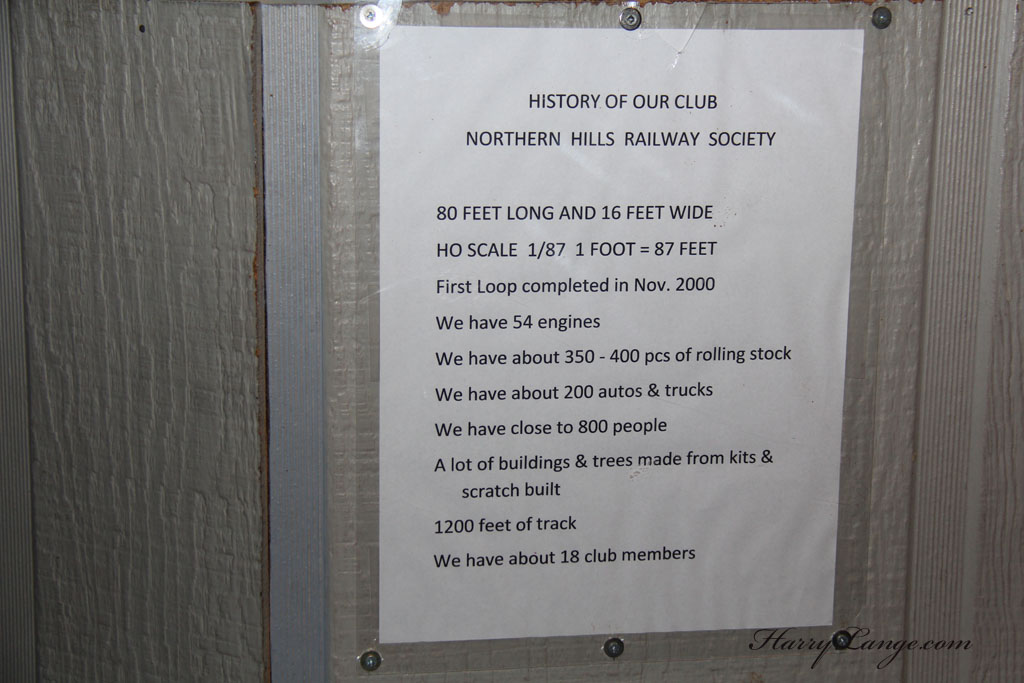 HISTORY OF OUR CLUB
NORTHERN HILLS RAILWAY SOCIETY
80 FEET LONG AND 16 FEET WIDE
HO SCALE 1/87 1 FOOT = 87 FEET
First Loop completed in Nov. 2000
We have 54 engines
We have about 350 - 400 pcs of rolling stock
We have about 200 autos & trucks
We have close to 800 people
A lot of buildings & trees made from kits &
scratch built
1200 feet of track
We have about 18 club members
HarryLange.com